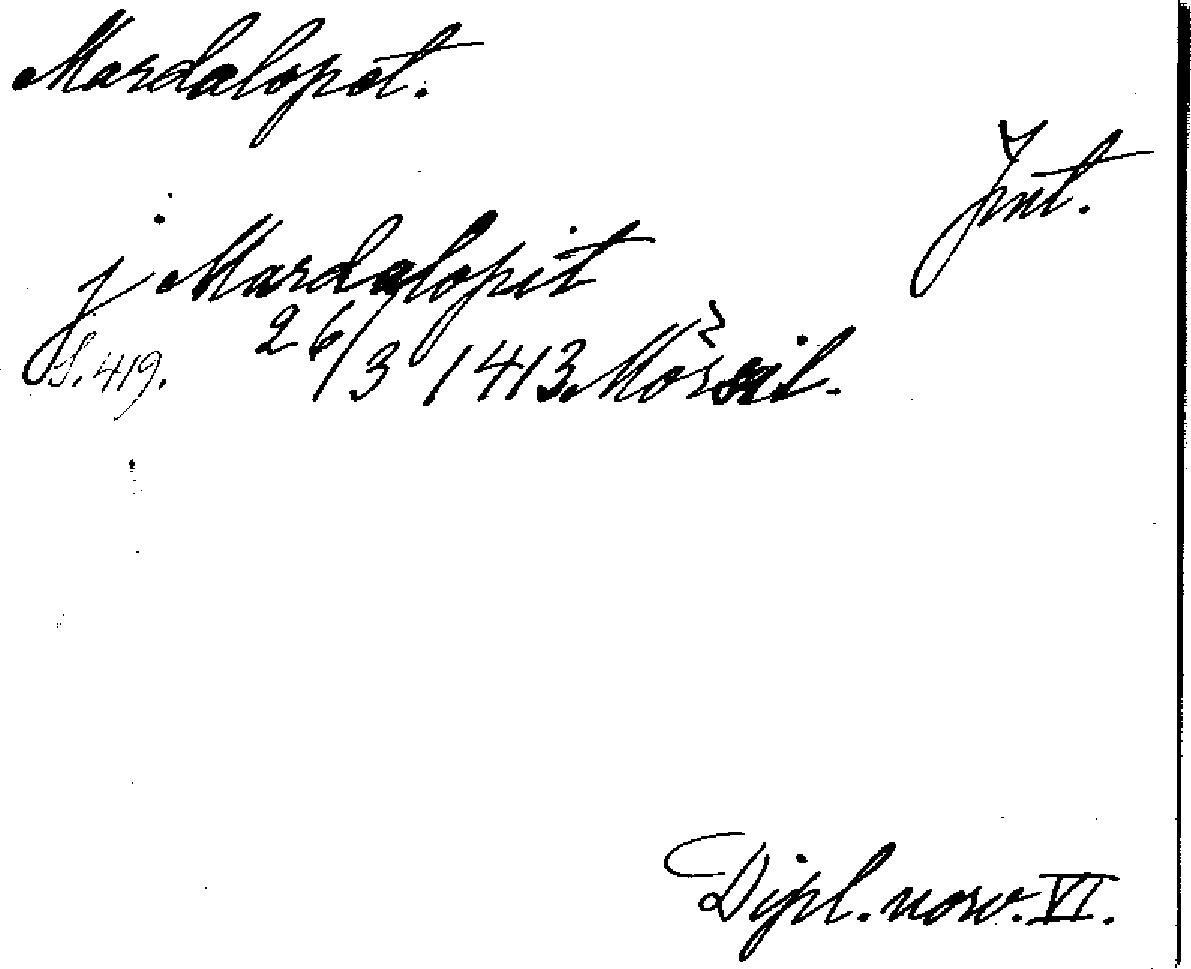 Mardalopet.
Jmt.
j Mardalopit
S. 419. 26/3 1413 Mörsil.
Dipl. norv. VI.